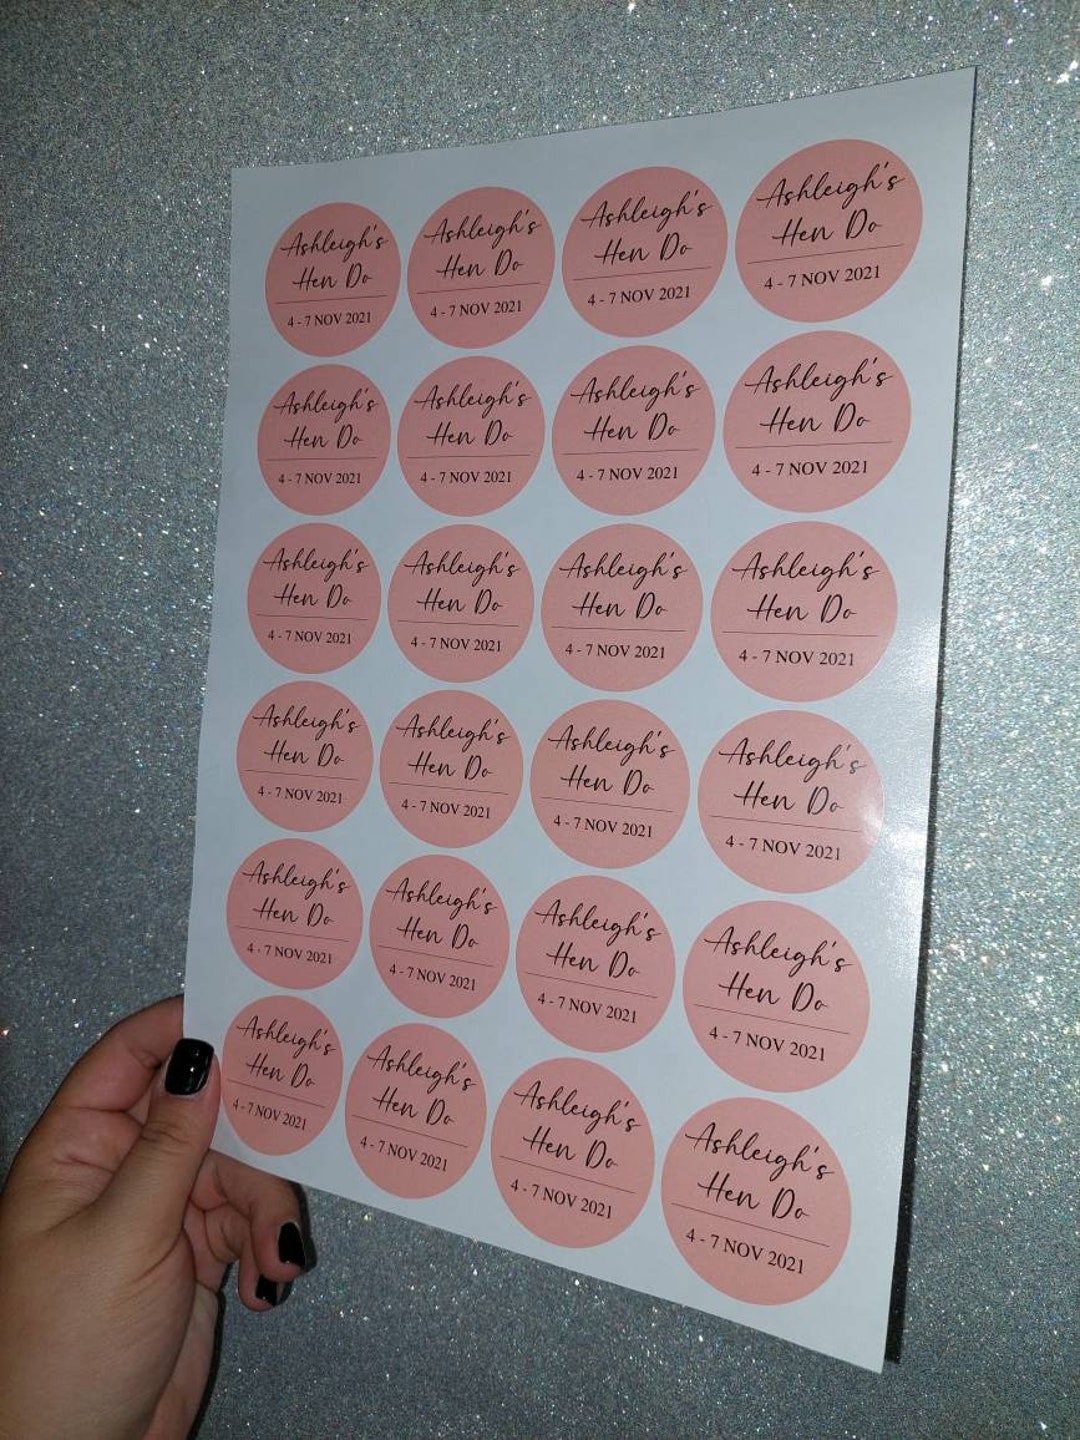 Ashleigh's
Hen Do
4 - 7 NOV 2021
Ashleigh's
Hen Do
4 - 7 NOV 2021
Ashleigh's
Hen Do
4 - 7 NOV 2021
Ashleigh's
Hen Do
4 - 7 NOV 2021
Ashleigh's
Hen Do
4 - 7 NOV 2021
Ashleigh's
Hen Do
4 - 7 NOV 2021
Ashleigh's
Hen Do
4 - 7 NOV 2021
Ashleigh's
Hen Do
4 - 7 NOV 2021
Ashleigh's
Hen Do
4 - 7 NOV 2021
Ashleigh's
Hen Do
4 - 7 NOV 2021
Ashleigh's
Hen Do
4 - 7 NOV 2021
Ashleigh's
Hen Do
4 - 7 NOV 2021
Ashleigh's
Hen Do
4 - 7 NOV 2021
Ashleigh's
Hen Do
4 - 7 NOV 2021
Ashleigh's
Hen Do
4 - 7 NOV 2021
Ashleigh's
Hen Do
4 - 7 NOV 2021
Ashleigh's
Hen Do
4 - 7 NOV 2021
Ashleigh's
Hen Do
4 - 7 NOV 2021
Ashleigh's
Hen Do
4 - 7 NOV 2021
Ashleigh's
Hen Do
4 - 7 NOV 2021
Ashleigh's
Hen Do
4 - 7 NOV 2021
Ashleigh's
Hen Do
4 - 7 NOV 2021
Ashleigh's
Hen Do
4 - 7 NOV 2021
Ashleigh's
Hen Do
4 - 7 NOV 2021